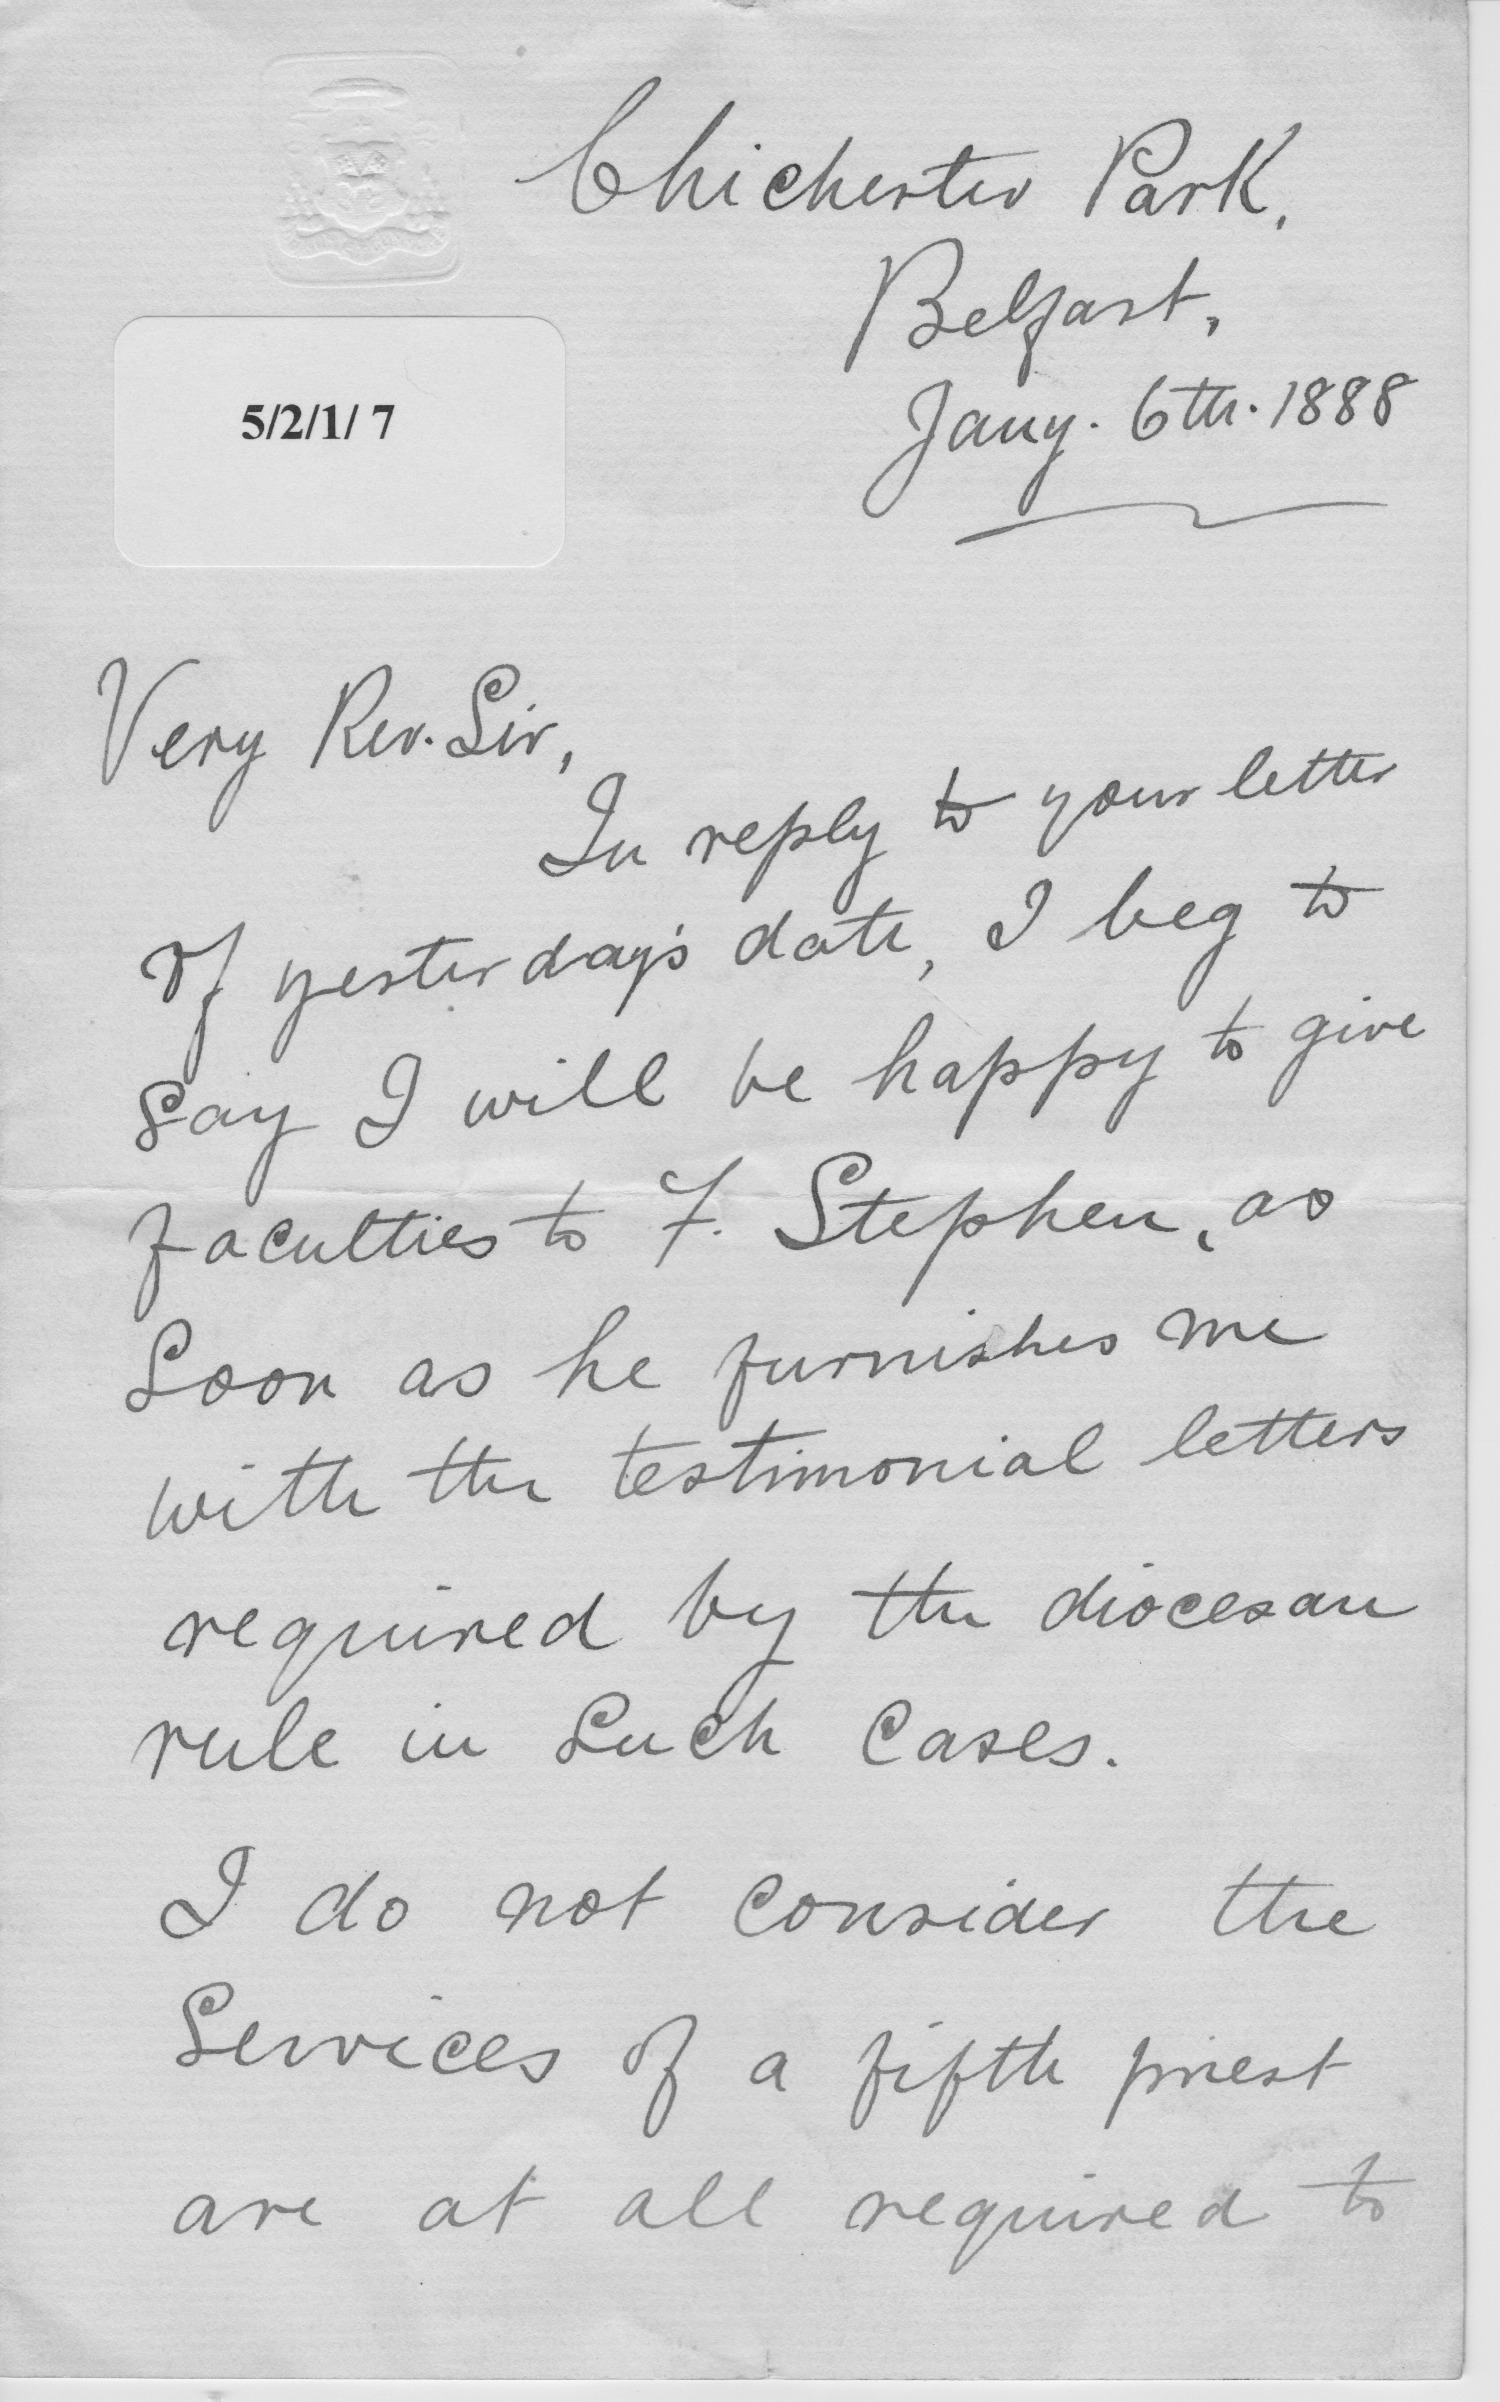 Chichester Park,
Belfast,
Jany. 6th. 1888
5/2/1/ 7
Very Rev. Sir,
In reply to your letter
of yesterday's date, I beg to
say I will be happy to give
faculties to F. Stephen, as
soon as he furnishes me
with the testimonial letters
required by the diocesan
rule in such cases.
I do not consider the
services of a fifth priest
are at all required to